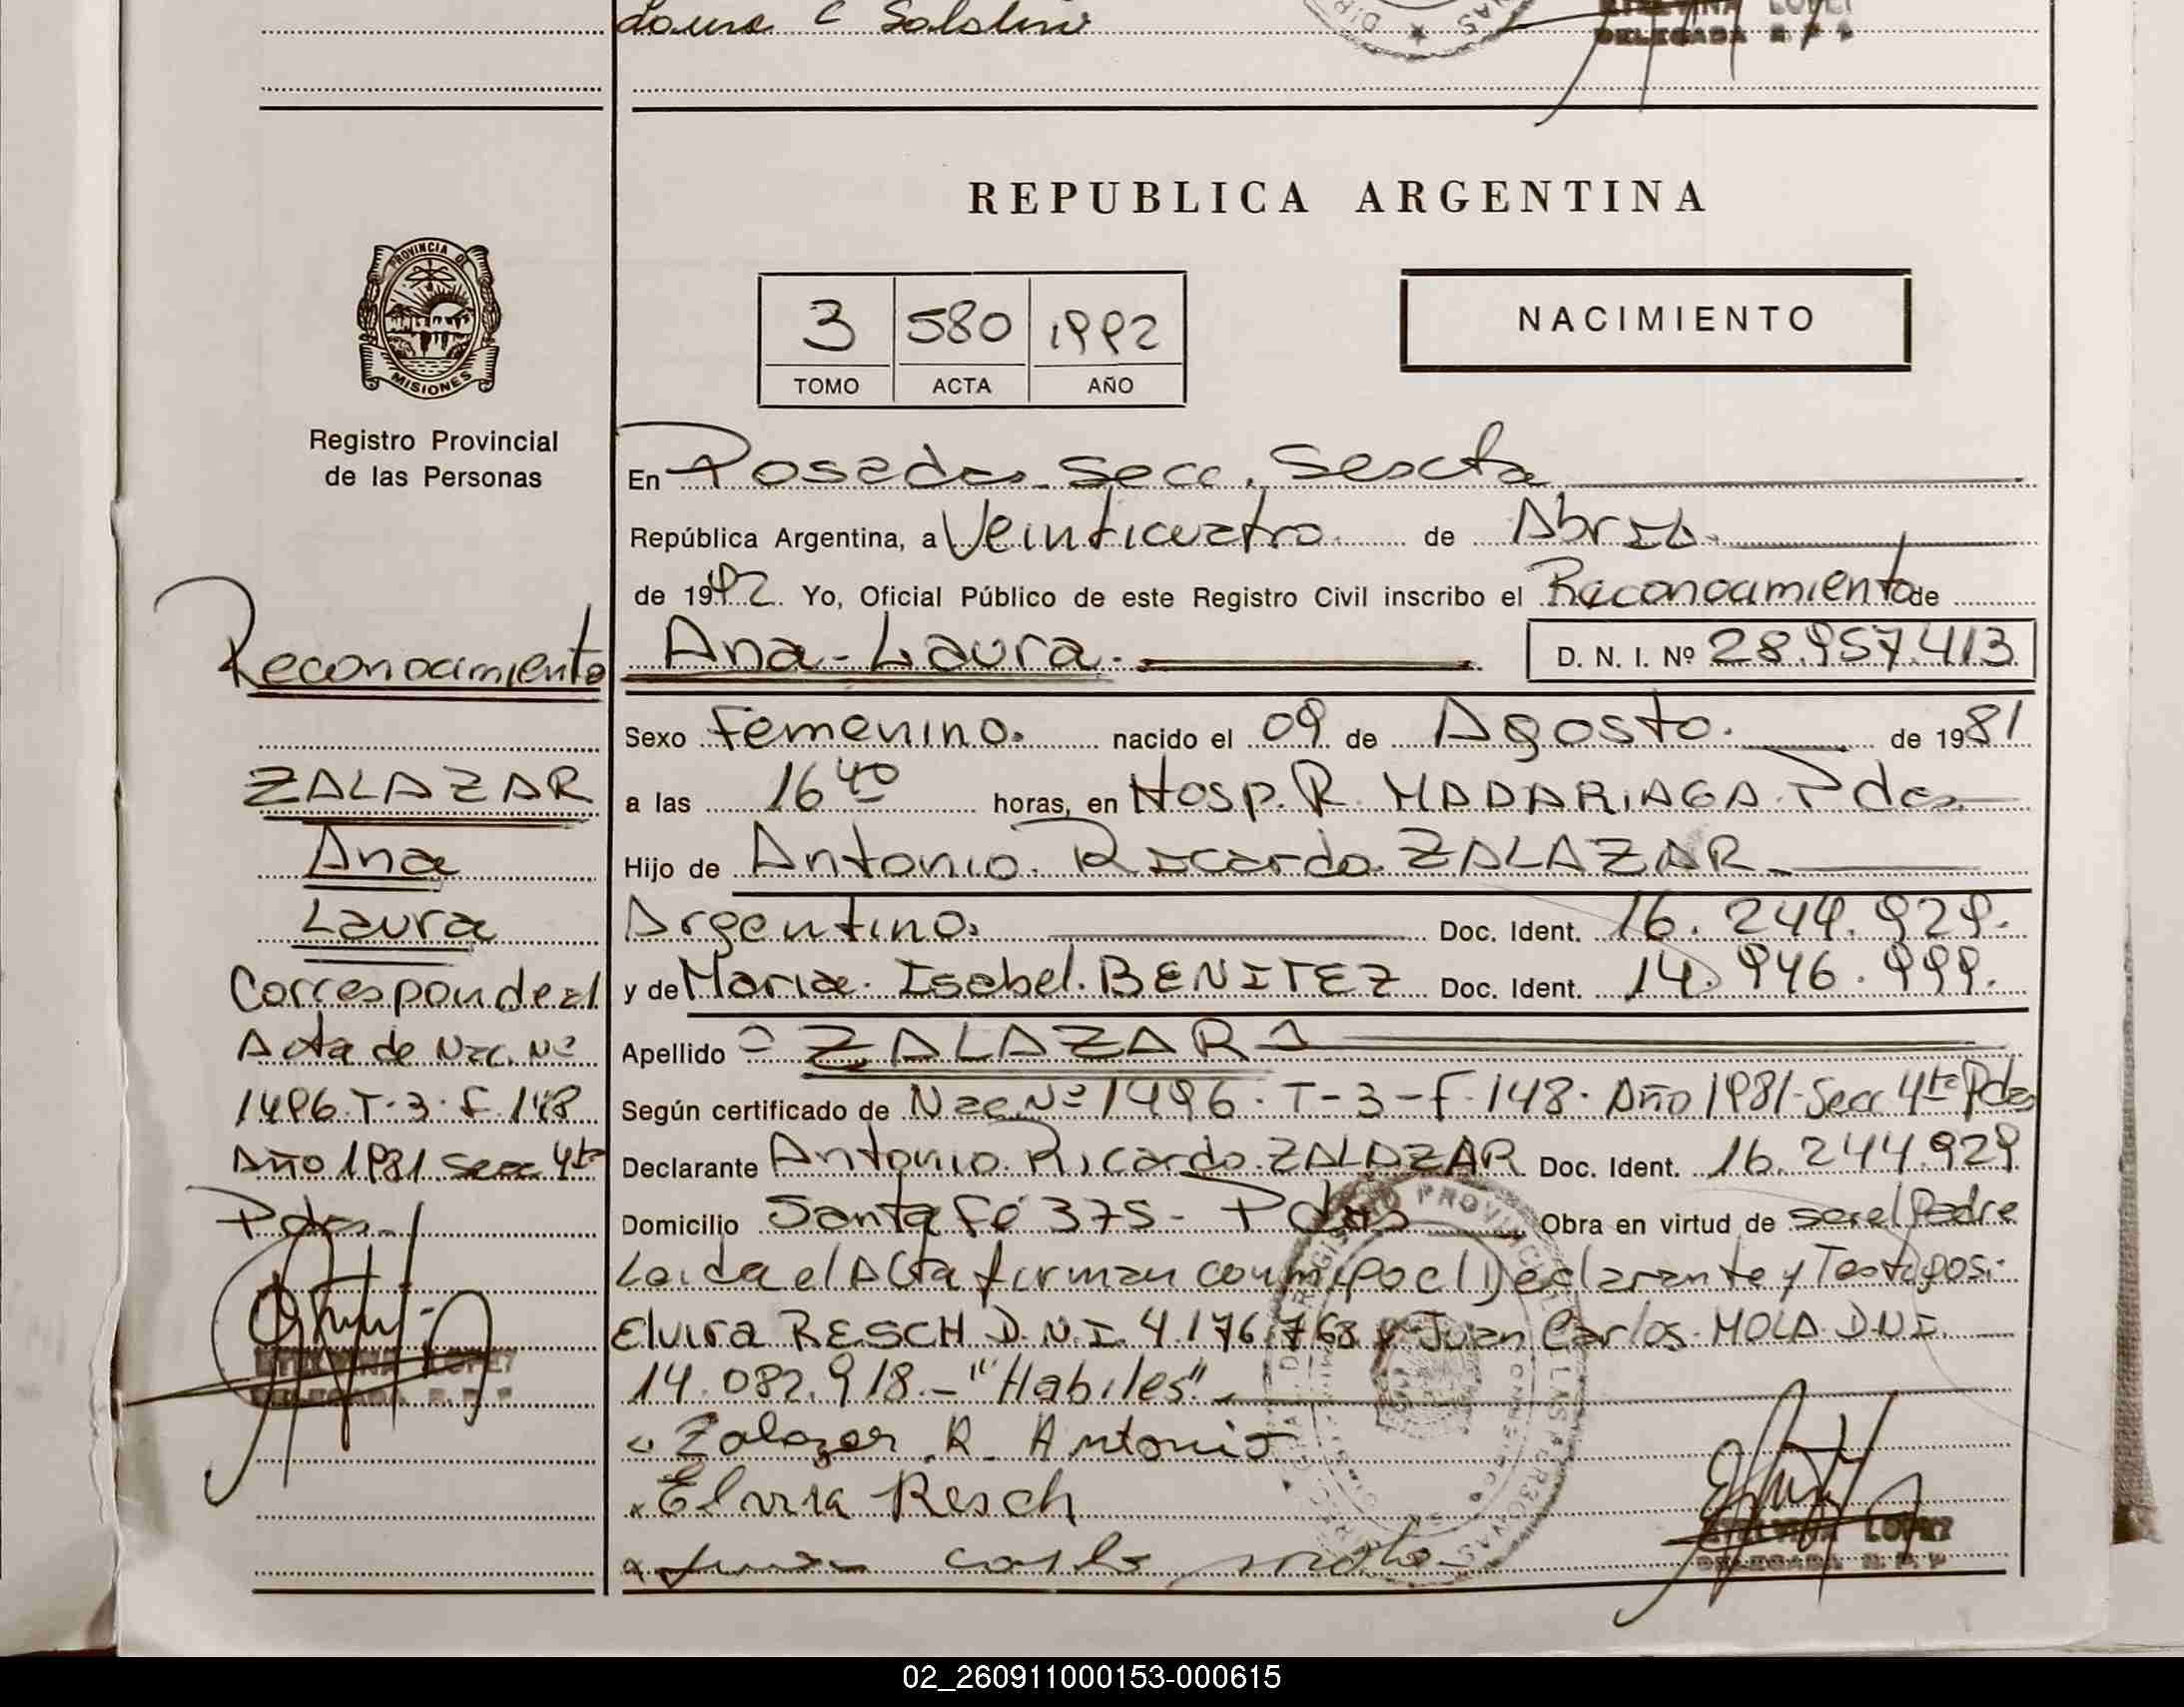 Laura C Saldivi
ETELVINA LOPEZ
DELEGADA R. P. P
REPUBLICA ARGENTINA
PROVINCIA DE
MISIONES
Registro Provincial
de las Personas
3 580 1992
TOMO ACTA AÑO
NACIMIENTO
En Posadas Secc. Sexta
República Argentina, a Veinticuatro de Abril
de 1992. Yo, Oficial Público de este Registro Civil inscribo el Reconocimiento de
Ana - Laura. D. N. I. Nº 28.957.413
Sexo Femenino. nacido el 09 de Agosto. de 1981
a las 16 40 horas, en Hosp. R. MADARIAGA. Pdas
Hijo de Antonio Ricardo ZALAZAR
Argentino. Doc. Ident. 16.244.929.
y de Maria Isabel. BENITEZ Doc. Ident. 14.946.999.
Apellido = ZALAZAR
Según certificado de Nac. Nº 1496. T-3-F.148. Año 1981. Secc 4ta Pdas
Declarante Antonio Ricardo ZALAZAR Doc. Ident. 16.244.929
Domicilio Santa Fé 375 - Pdas Obra en virtud de ser el Padre
Leida el Acta firman conmigo el Declarante y Testigos:
Elvira RESCH D.N.I. 4.176.768 y Juan Carlos MOLA D.N.I.
14.082.918.- "Habiles".
Zalazar R. Antonio
Elvira Resch
ETELVINA LOPEZ
DELEGADA R. P. P
Reconocimiento
ZALAZAR
Ana
Laura
Corresponde al
Acta de Nac. Nº
1496. T. 3. F. 148
Año 1981. Secc 4ta
Pdas.
ETELVINA LOPEZ
DELEGADA R. P. P
02_260911000153-000615